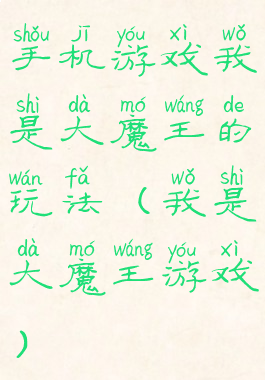 shǒu jī yóu xì wǒ
手机游戏我
shì dà mó wáng de
是大魔王的
wán fǎ wǒ shì
玩法（我是
dà mó wáng yóu xì
大魔王游戏
）